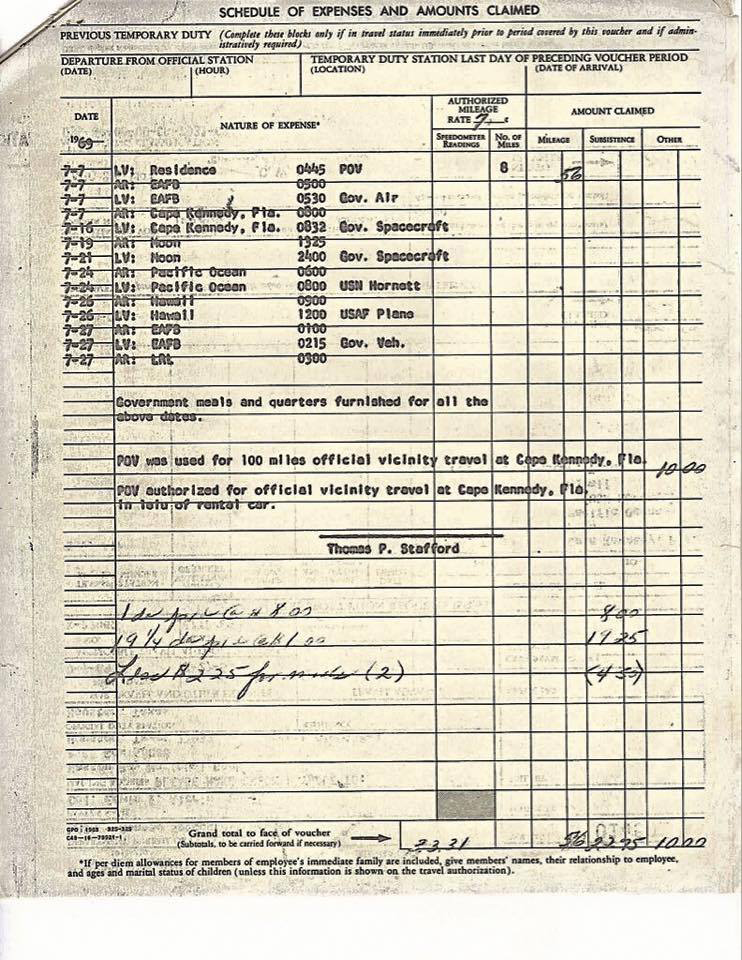 SCHEDULE OF EXPENSES AND AMOUNTS CLAIMED
PREVIOUS TEMPORARY DUTY (Complete these blocks only if in travel status immediately prior to period covered by this voucher and if admin-
istratively required)
DEPARTURE FROM OFFICIAL STATION
(DATE) (HOUR)
TEMPORARY DUTY STATION LAST DAY OF PRECEDING VOUCHER PERIOD
(LOCATION) (DATE OF ARRIVAL)
DATE
1969
NATURE OF EXPENSE*
AUTHORIZED
MILEAGE
RATE 7 c
AMOUNT CLAIMED
SPEEDOMETER
READINGS
NO. OF
MILES
MILEAGE SUBSISTENCE OTHER
7-7 LV: Residence 0445 POV 8 56
7-7 AR: EAFB 0500
7-7 LV: EAFB 0530 Gov. Air
7-7 AR: Cape Kennedy, Fla. 0800
7-16 LV: Cape Kennedy, Fla. 0832 Gov. Spacecraft
7-19 AR: Moon 1325
7-21 LV: Moon 2400 Gov. Spacecraft
7-24 AR: Pacific Ocean 0600
7-24 LV: Pacific Ocean 0800 USN Hornett
7-26 AR: Hawaii 0900
7-26 LV: Hawaii 1200 USAF Plane
7-27 AR: EAFB 0100
7-27 LV: EAFB 0215 Gov. Veh.
7-27 AR: LRL 0300
Government meals and quarters furnished for all the
above dates.
POV was used for 100 miles official vicinity travel at Cape Kennedy, Fla. 10.00
POV authorized for official vicinity travel at Cape Kennedy, Fla.
in leiu of rental car.
Thomas P. Stafford
1 8.00 8.00
19 1/4 1.00 19.25
Less $2.25 for meals (2) (4.50)
GPO : 1968
Grand total to face of voucher
(Subtotals, to be carried forward if necessary)
33.31 56 22.75 10.00
*If per diem allowances for members of employee's immediate family are included, give members' names, their relationship to employee,
and ages and marital status of children (unless this information is shown on the travel authorization).